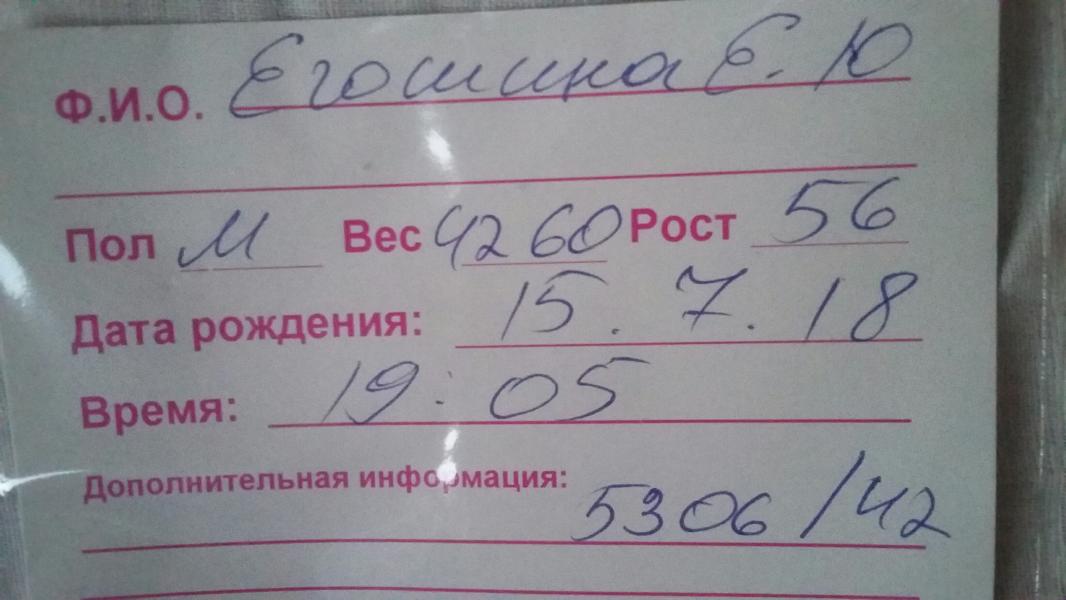 Ф.И.О. Егошина Е. Ю
Пол М Вес 4260 Рост 56
Дата рождения: 15.7.18
Время: 19:05
Дополнительная информация:
5306/42